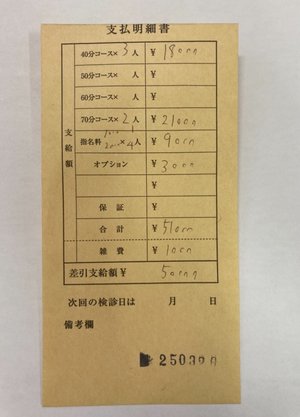 支払明細書
支給額
40分コース× 3人 ¥18000
50分コース× 人 ¥
60分コース× 人 ¥
70分コース× 2人 ¥21000
指名料 ×4人 ¥9000
オプション ¥3000
¥
保証 ¥
合計 ¥51000
雑費 ¥1000
差引支給額¥ 50000
次回の検診日は 月 日
備考欄